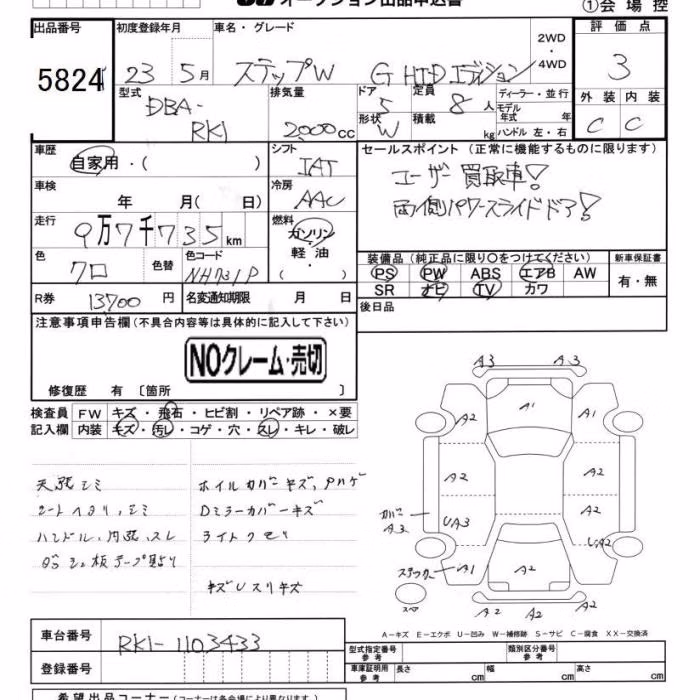 オークション出品申込書
①会場控
出品番号 5824
初度登録年月 23年 5月
車名・グレード ステップW G HIDエディション
2WD・4WD
評価点 3
外装 C 内装 C
型式 DBA-RK1
排気量 2000cc
ドア 5 形状 W
定員 8人 積載 kg
ディーラー・並行
モデル年式 年
ハンドル 左・右
車歴 自家用・( )
シフト IAT
セールスポイント (正常に機能するものに限ります)
ユーザー買取車!
両側パワースライドドア!
車検 年 月( 日)
冷房 AAC
走行 9万7千735km
燃料 ガソリン 軽油 ・( )
色 クロ 色替
色コード NH731P
装備品 (純正品に限り○をつけてください)
PS PW ABS エアB AW
SR ナビ TV カワ
新車保証書 有・無
R券 13700円
名変通知期限 月 日
後日品
注意事項申告欄(不具合内容等は具体的に記入して下さい)
NOクレーム・売切
修復歴 有 〔箇所 〕
検査員記入欄 FW キズ・飛石・ヒビ割・リペア跡・×要
内装 キズ・汚レ・コゲ・穴・スレ・キレ・破レ
シートヘタリ、シミ
ハンドル、内張、スレ
ホイルカバーキズ、Pハゲ
Dミラーカバーキズ
ライトクモリ
キズUスリキズ
A3 A3
A1
A2 A1
A2 A2
カバー A3 UA3 A2
UA2
ステッカー A1 A2
スペア
A2 A2 A2
A-キズ E-エクボ U-凹み W-補修跡 S-サビ C-腐食 XX-交換済
車台番号 RK1-1103433
登録番号
型式指定番号 参考
類別区分番号 参考
車庫証明用 参考 長さ cm 幅 cm 高さ cm
希望出品コーナー (コーナーは各会場により異なります)